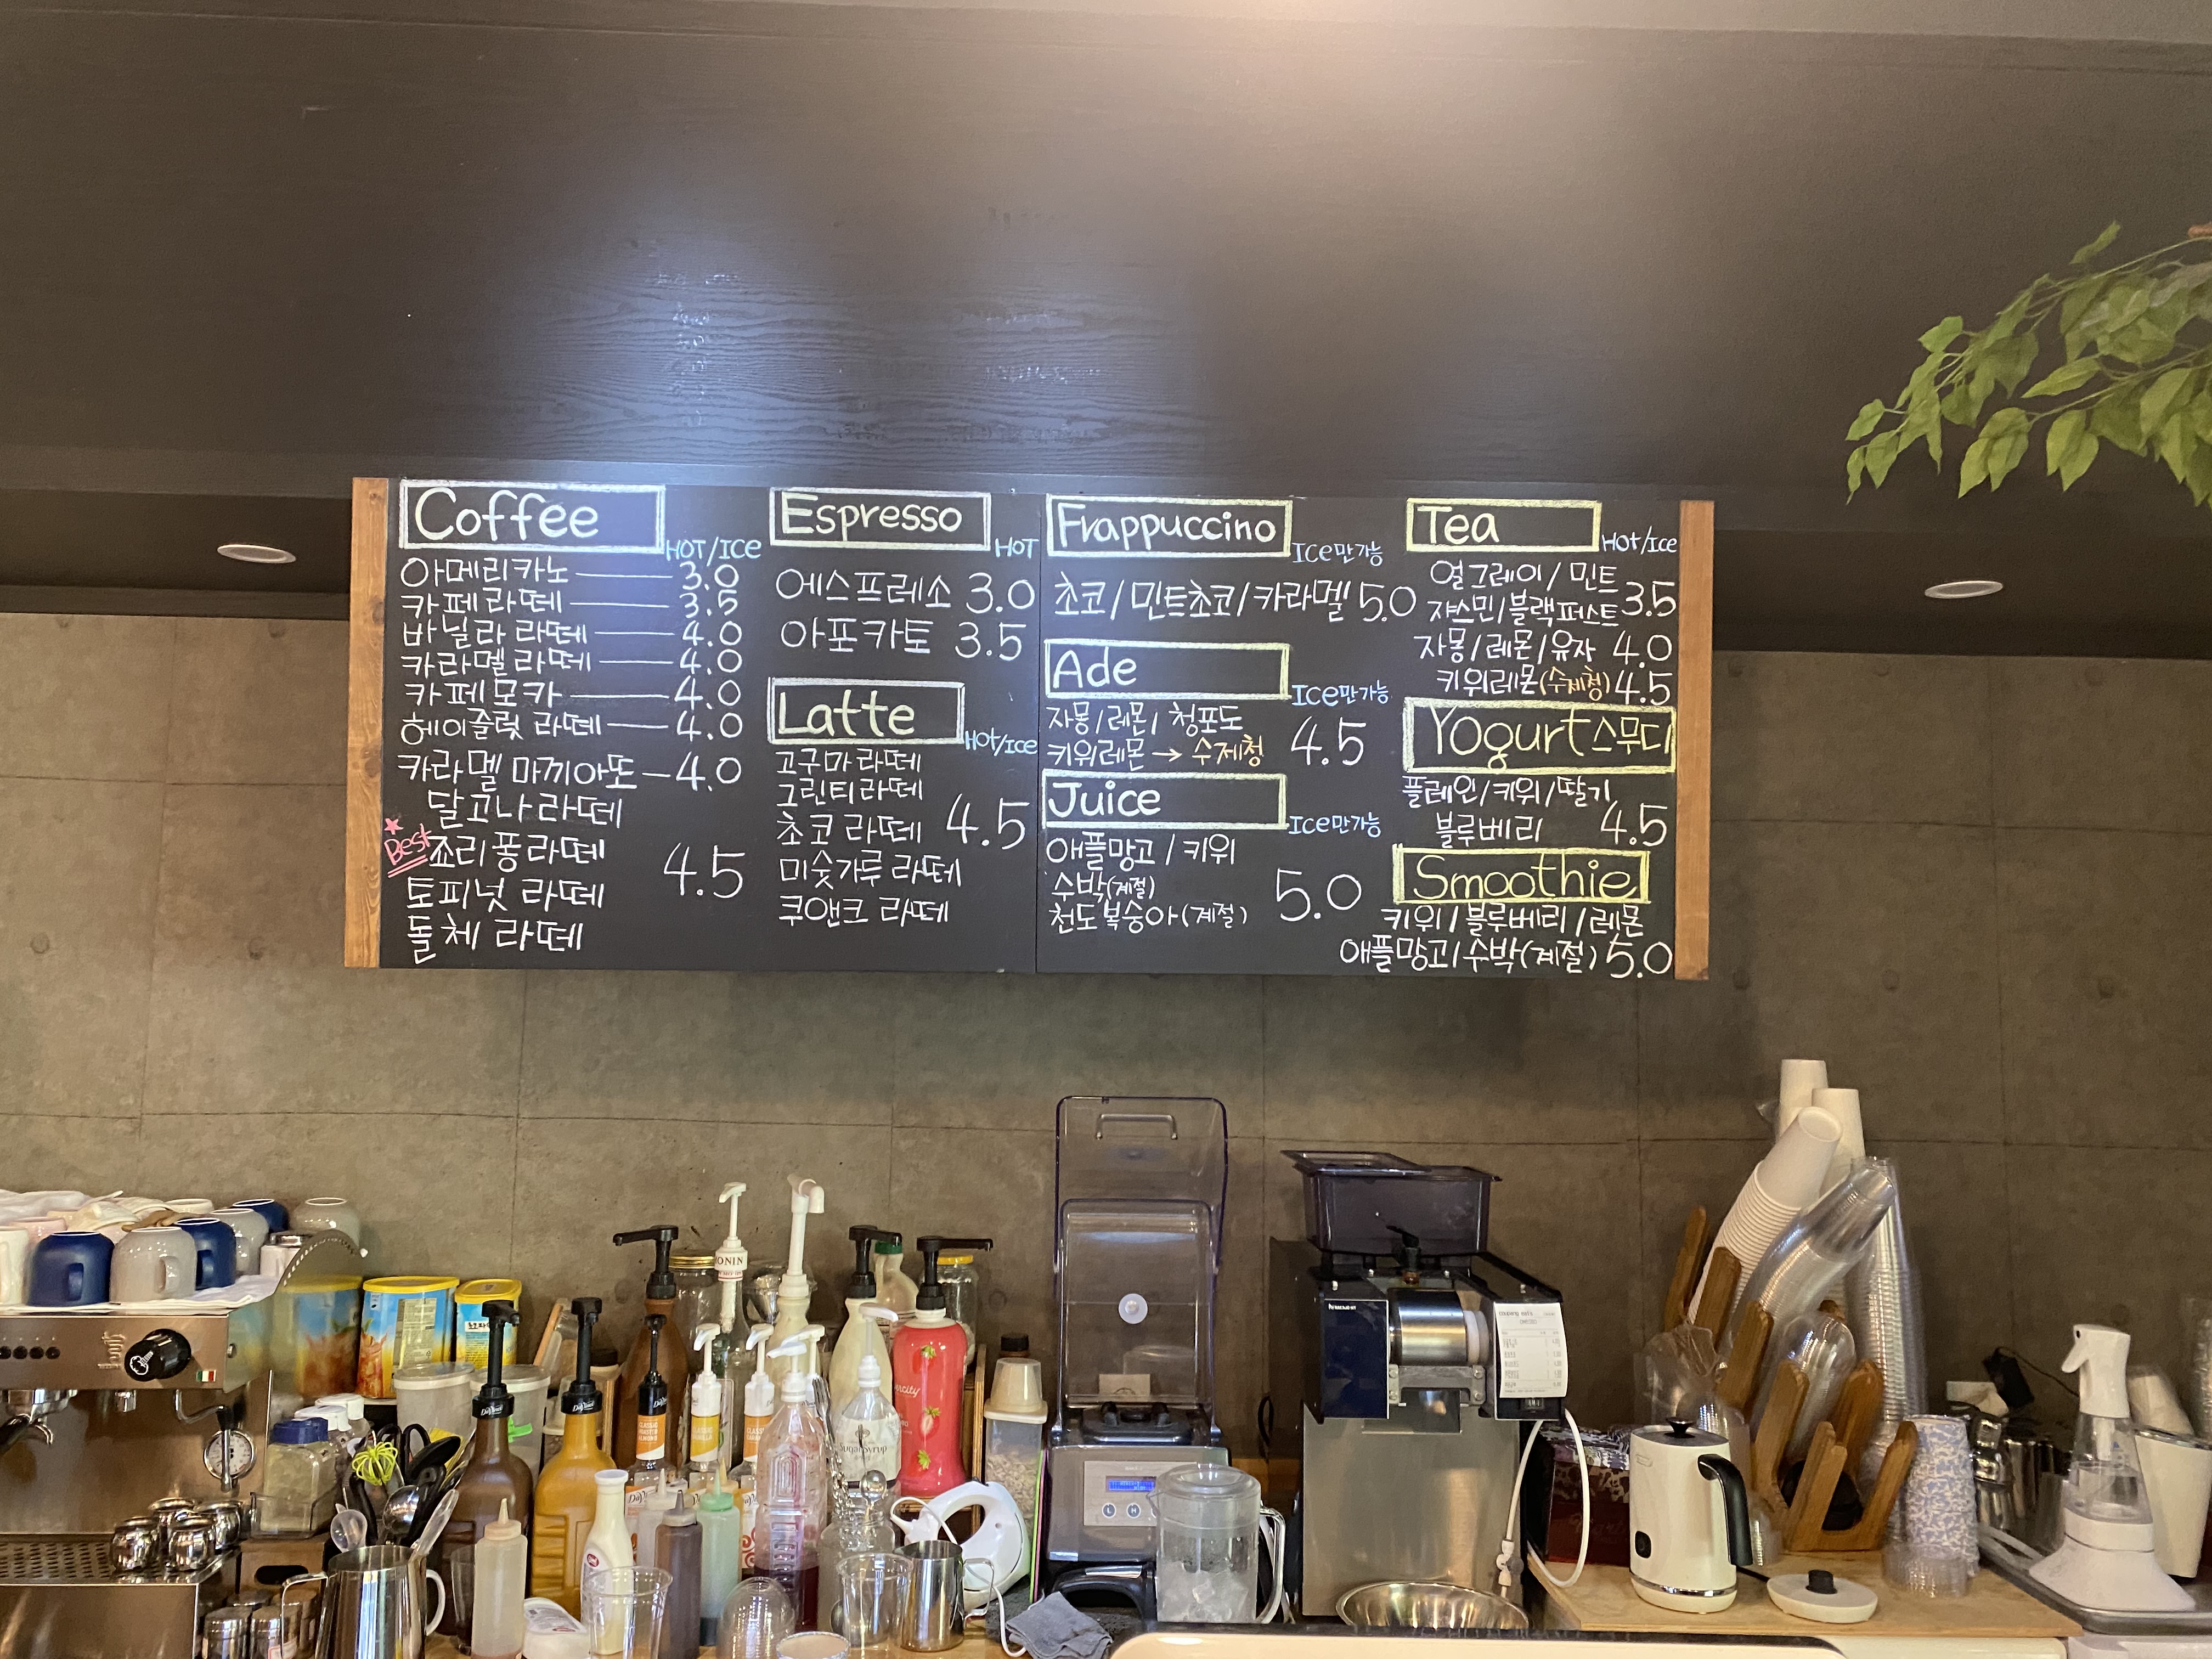 Coffee
HOT/ICE
아메리카노 3.0
카페라떼 3.5
바닐라 라떼 4.0
카라멜라떼 4.0
카페모카 4.0
헤이즐럿 라떼 4.0
카라멜 마끼아또 4.0
달고나라떼
Best
죠리퐁라떼
4.5
토피넛 라떼
돌체 라떼
Espresso
HOT
에스프레소 3.0
아포카토 3.5
Latte
Hot/Ice
고구마라떼
그린티라떼
초코 라떼 4.5
미숫가루 라떼
쿠앤크 라떼
Frappuccino
Ice만가능
초코/민트초코/카라멜 5.0
Ade
Ice만가능
자몽/레몬/청포도
4.5
키위레몬→수제청
Juice
Ice만가능
애플망고/키위
수박(계절) 5.0
천도복숭아(계절)
Tea
Hot/Ice
얼그레이/민트
3.5
쟈스민/블랙퍼스트
자몽/레몬/유자 4.0
키위레몬(수제청) 4.5
Yogurt스무디
플레인/키위/딸기
블루베리 4.5
Smoothie
키위/블루베리/레몬
애플망고/수박(계절) 5.0
MONIN
Sugar Syrup